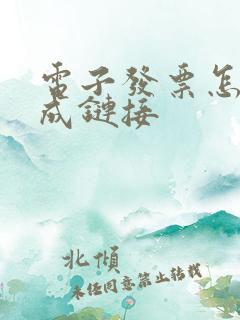 電子發票怎
成鏈接
北傾
未任同意禁止轉載